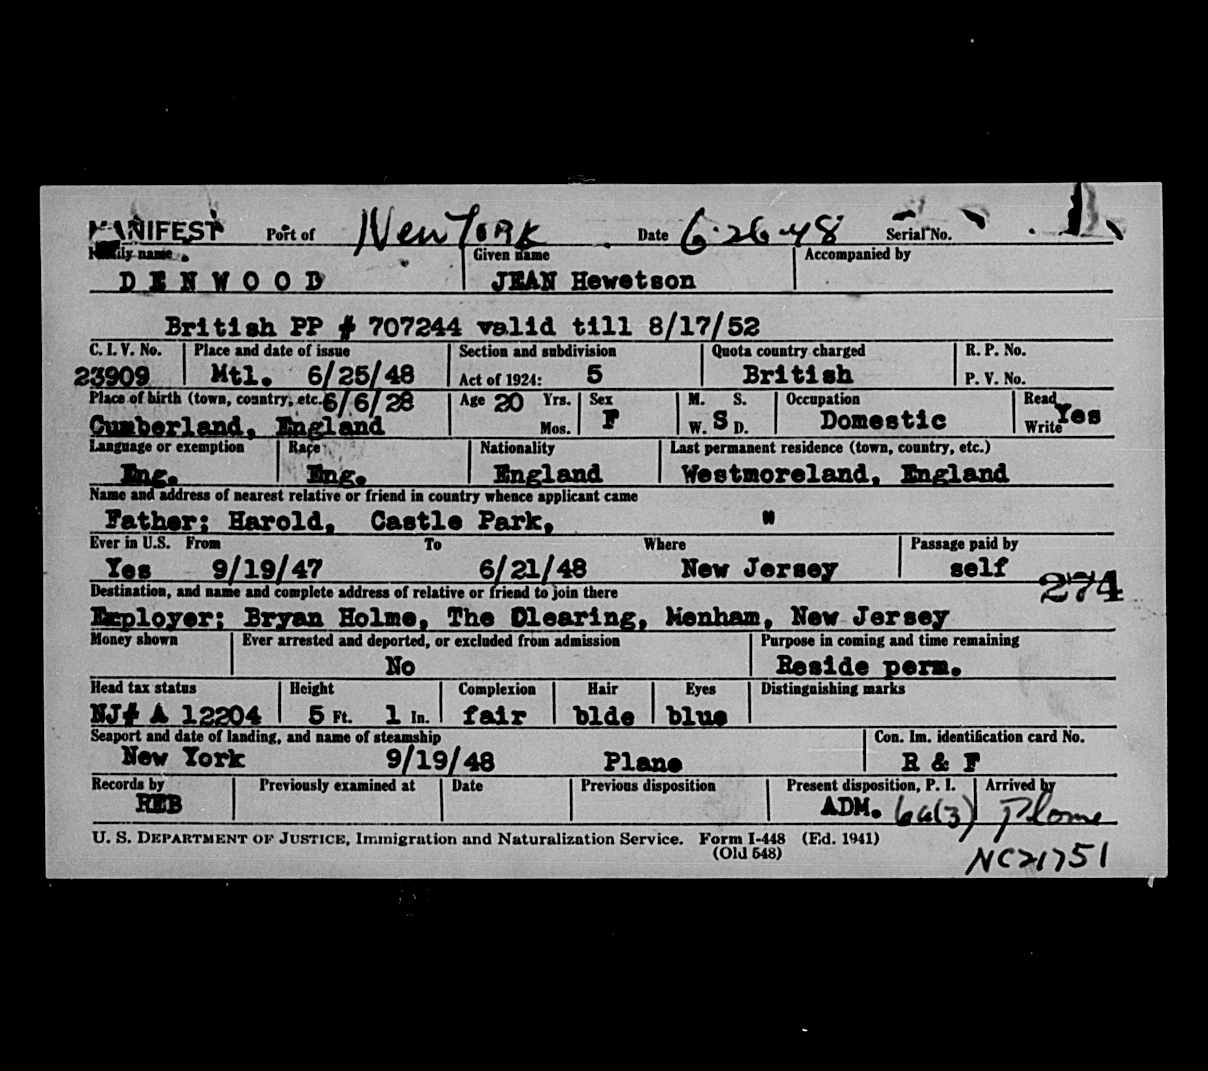 MANIFEST Port of New York Date 6-26-48 Serial No.
Family name Given name Accompanied by
DENWOOD JEAN Hewetson
British PP # 707244 valid till 8/17/52
C. I. V. No. Place and date of issue Section and subdivision Quota country charged R. P. No.
23909 Mtl. 6/25/48 Act of 1924: 5 British P. V. No.
Place of birth (town, country, etc. 6/6/28 Age 20 Yrs. Sex M. S. Occupation Read
Cumberland, England Mos. F W. S D. Domestic Write Yes
Language or exemption Race Nationality Last permanent residence (town, country, etc.)
Eng. Eng. England Westmoreland, England
Name and address of nearest relative or friend in country whence applicant came
Father: Harold, Castle Park, "
Ever in U.S. From To Where Passage paid by
Yes 9/19/47 6/21/48 New Jersey self 274
Destination, and name and complete address of relative or friend to join there
Employer: Bryan Holme, The Clearing, Menham, New Jersey
Money shown Ever arrested and deported, or excluded from admission Purpose in coming and time remaining
No Reside perm.
Head tax status Height Complexion Hair Eyes Distinguishing marks
NJ# A 12204 5 Ft. 1 In. fair blde blue
Seaport and date of landing, and name of steamship Con. Im. identification card No.
New York 9/19/48 Plane R & F
Records by Previously examined at Date Previous disposition Present disposition, P. I. Arrived by
REB ADM. 6a(3) Plane
U. S. DEPARTMENT OF JUSTICE, Immigration and Naturalization Service. Form I-448 (Ed. 1941)
(Old 548)
NC21751